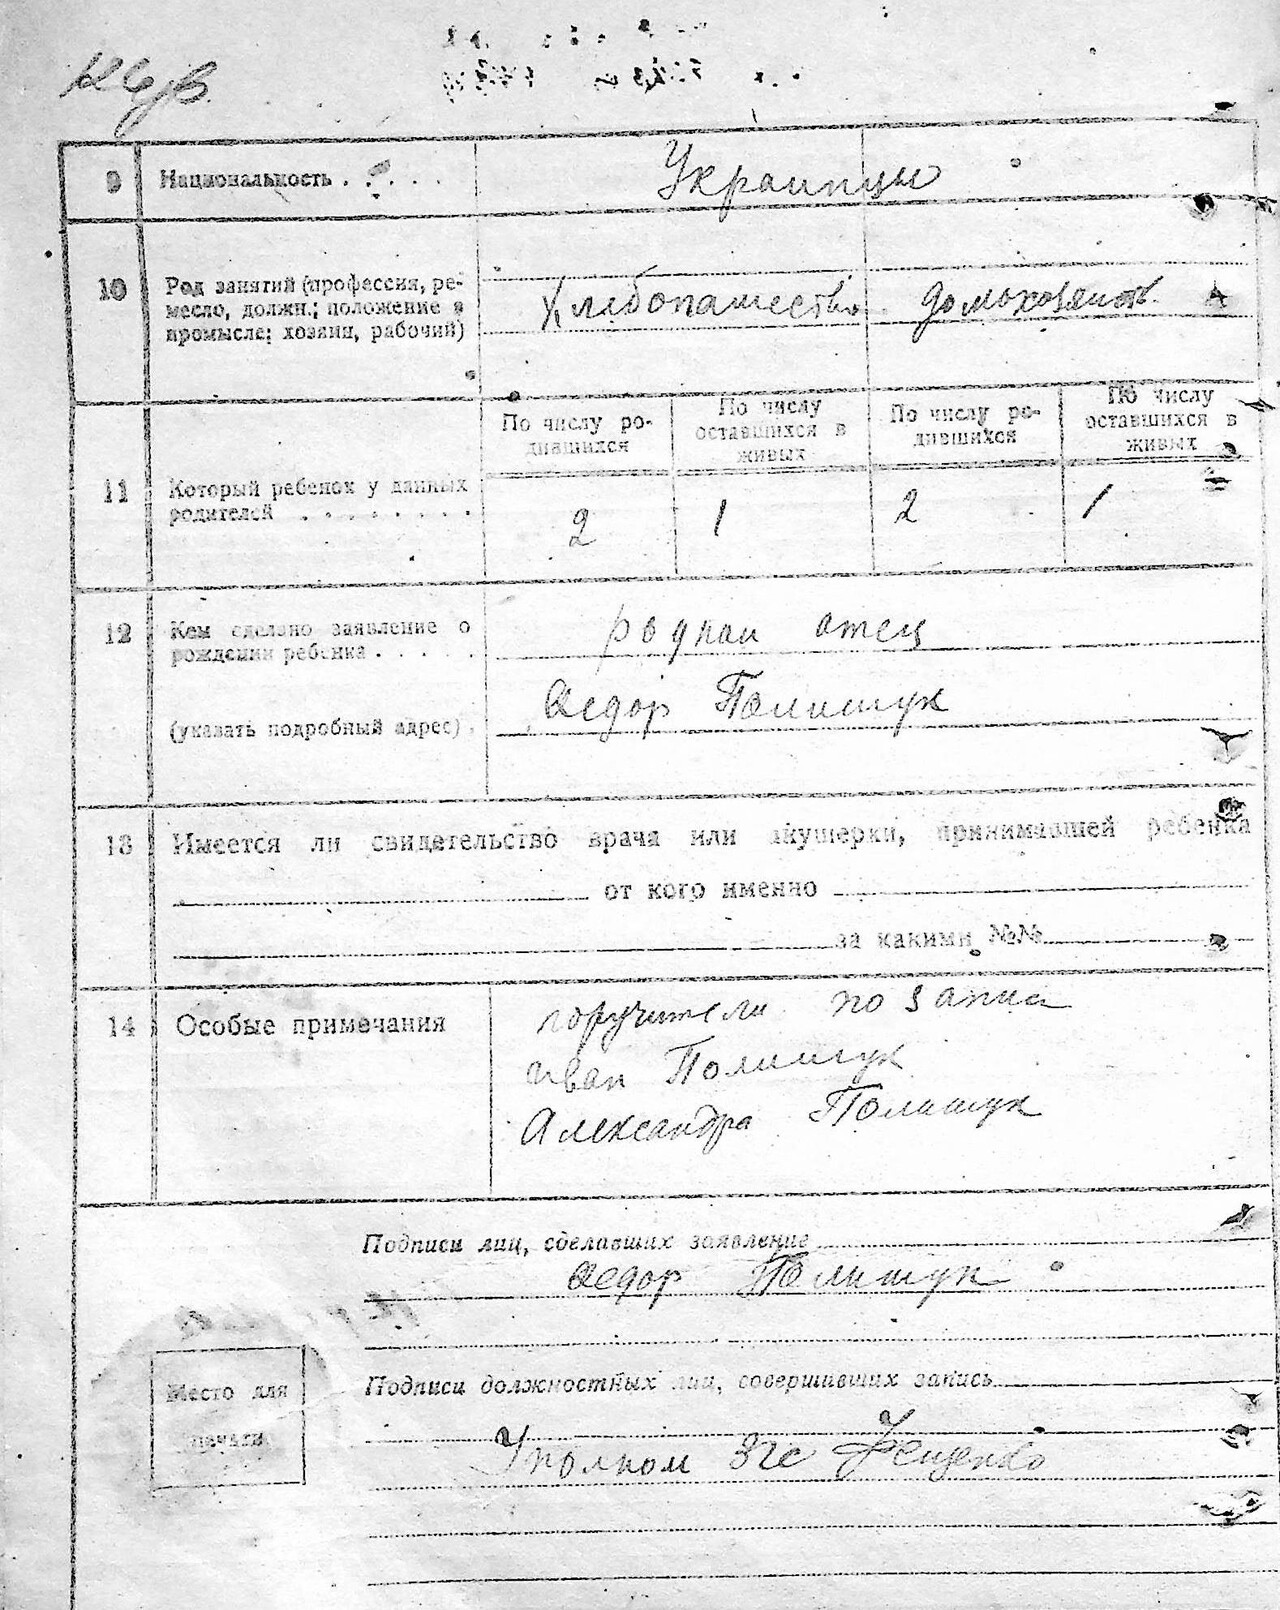 9 Национальность . . . . . Украинцы
10 Род занятий (профессия, ре-
месло, должн.; положение в
промысле; хозяин, рабочий)
Хлебопашество домохозяйств.
По числу ро-
дившихся
По числу
оставшихся в
живых
По числу ро-
дившихся
По числу
оставшихся в
живых
11 Который ребенок у данных
родителей . . . . . . . .
2 1 2 1
12 Кем сделано заявление о
рождении ребенка . . . . .
родной отец
(указать подробный адрес) .
Федор Полищук
13 Имеется ли свидетельство врача или акушерки, принимавшей ребенка
от кого именно
за какими №№
14 Особые примечания
поручители по записи
Иван Полищук
Александра Полищук
Подписи лиц, сделавших заявление
Федор Полищук
Место для
печати
Подписи должностных лиц, совершивших запись
Уполном Загс